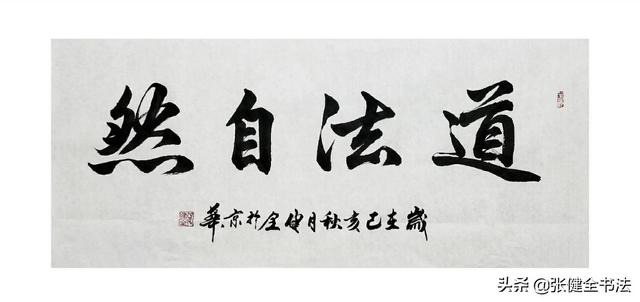 道法自然
歲在己亥秋月健全於京華
头条 @张健全书法